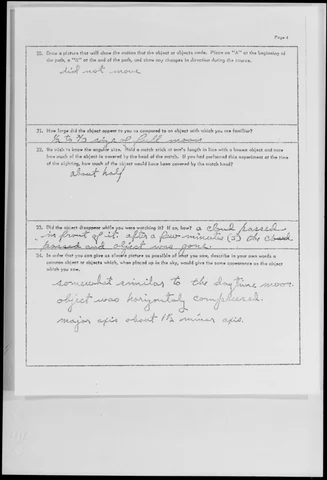 Page 4
20. Draw a picture that will show the motion that the object or objects made. Place an "A" at the beginning of
the path, a "B" at the end of the path, and show any changes in direction during the course.
did not move
21. How large did the object appear to you as compared to an object with which you are familiar?
size of full moon
22. We wish to know the angular size. Hold a match stick at arm's length in line with a known object and note
how much of the object is covered by the head of the match. If you had performed this experiment at the time
of the sighting, how much of the object would have been covered by the match head?
about half
23. Did the object disappear while you were watching it? If so, how? a cloud passed
in front of it. after a few minutes (2) the cloud
passed and object was gone.
24. In order that you can give as close a picture as possible of what you saw, describe in your own words a
common object or objects which, when placed up in the sky, would give the same appearance as the object
which you saw.
somewhat similar to the daytime moon.
object was horizontally compressed.
major axis about 1½ minor axis.